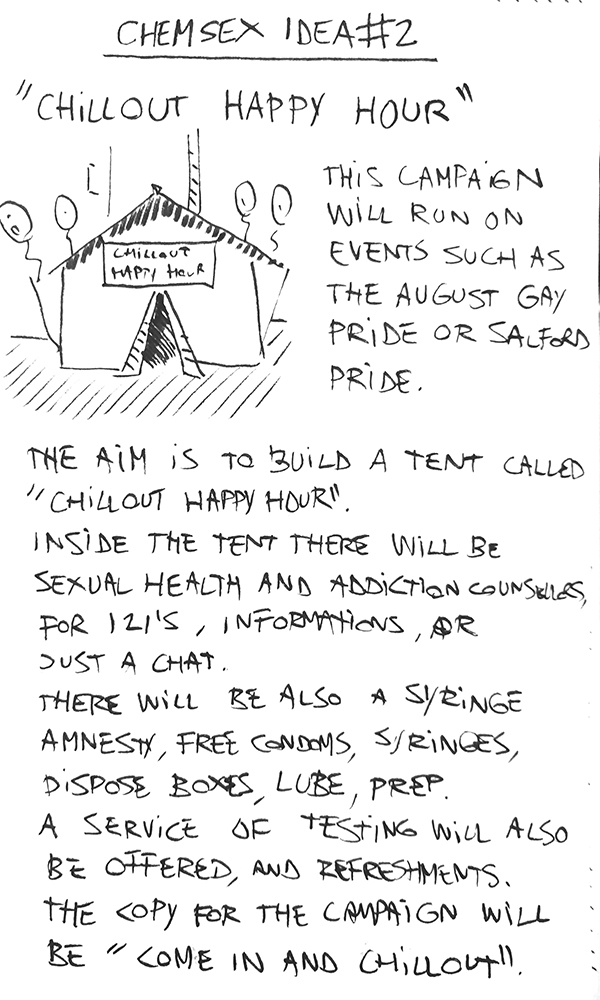 CHEMSEX IDEA#2
"CHILLOUT HAPPY HOUR"
CHILLOUT
HAPPY HOUR
THIS CAMPAIGN
WILL RUN ON
EVENTS SUCH AS
THE AUGUST GAY
PRIDE OR SALFORD
PRIDE.
THE AIM IS TO BUILD A TENT CALLED
"CHILLOUT HAPPY HOUR".
INSIDE THE TENT THERE WILL BE
SEXUAL HEALTH AND ADDICTION COUNSELLORS,
FOR 121'S, INFORMATIONS, OR
JUST A CHAT.
THERE WILL BE ALSO A SYRINGE
AMNESTY, FREE CONDOMS, SYRINGES,
DISPOSE BOXES, LUBE, PREP.
A SERVICE OF TESTING WILL ALSO
BE OFFERED, AND REFRESHMENTS.
THE COPY FOR THE CAMPAIGN WILL
BE "COME IN AND CHILLOUT".